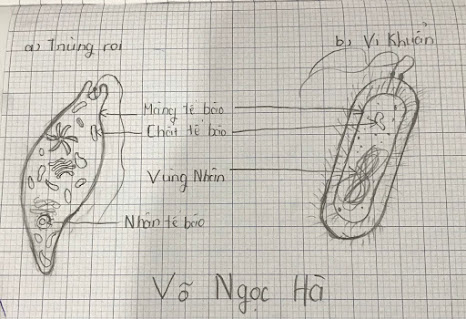 a) Trùng roi
b) Vi Khuẩn
Màng tế bào
Chất tế bào
Vùng Nhân
Nhân tế bào
Võ Ngọc Hà